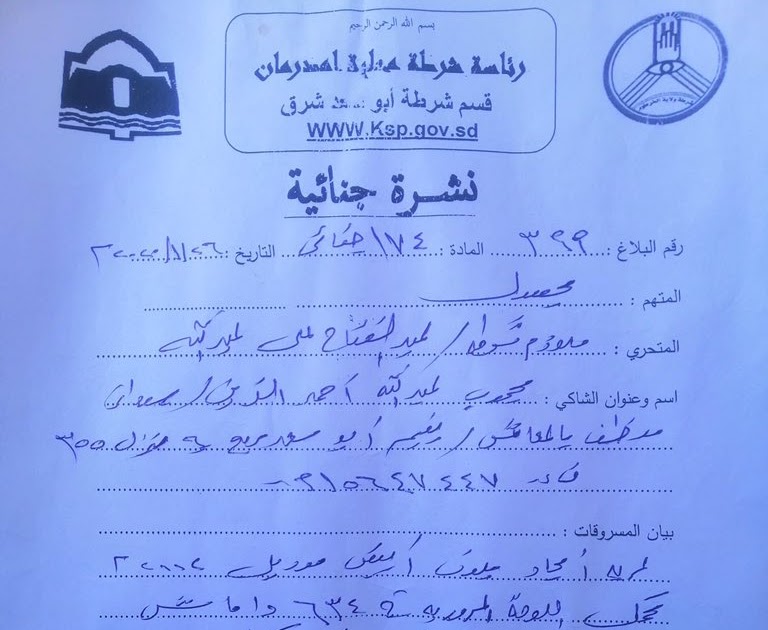 بسم الله الرحمن الرحيم
رئاسة شرطة محلية امدرمان
قسم شرطة أبو سعد شرق
WWW.Ksp.gov.sd
نشرة جنائية
رقم البلاغ : ٣٩٩ المادة : ١٧٤ جنائي التاريخ :
المتهم : مجهول
المتحري : ملازم شرطة / عبدالفتاح علي عبدالله
اسم وعنوان الشاكي : محجوب عبدالله أحمد / سوداني
موظف بالمعاش / يقيم أبو سعد مربع ٩ منزل ٣٥٥
بيان المسروقات :
عربة أمجاد ملون أبيض موديل
تحمل اللوحة المرورية ٦٣٤